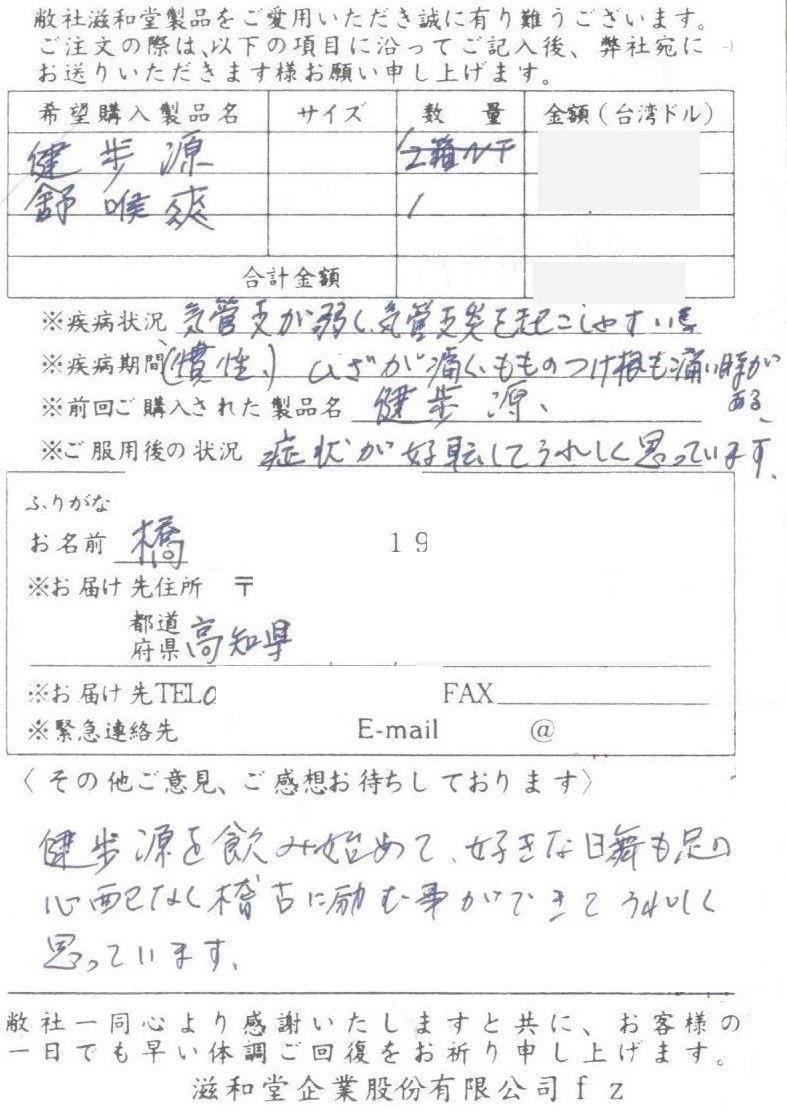 敝社滋和堂製品をご愛用いただき誠に有り難うございます。
ご注文の際は、以下の項目に沿ってご記入後、弊社宛に
お送りいただきます様お願い申し上げます。
希望購入製品名 サイズ 数量 金額(台湾ドル)
健歩源
舒喉爽 1
合計金額
※疾病状況 気管支が弱く、気管支炎を起こしやすい
※疾病期間(慣性、) ひざが痛く、もものつけ根も痛い時が
ある、
※前回ご購入された製品名 健歩源、
※ご服用後の状況 症状が好転してうれしく思っています、
ふりがな
お名前 橋 19
※お届け先住所 〒
都道府県 高知県
※お届け先TEL0 FAX
※緊急連絡先 E-mail @
〈その他ご意見、ご感想お待ちしております〉
健歩源を飲み始めて、好きな日舞も足の
心配なく稽古に励む事ができてうれしく
思っています、
敝社一同心より感謝いたしますと共に、お客様の
一日でも早い体調ご回復をお祈り申し上げます。
滋和堂企業股份有限公司fz